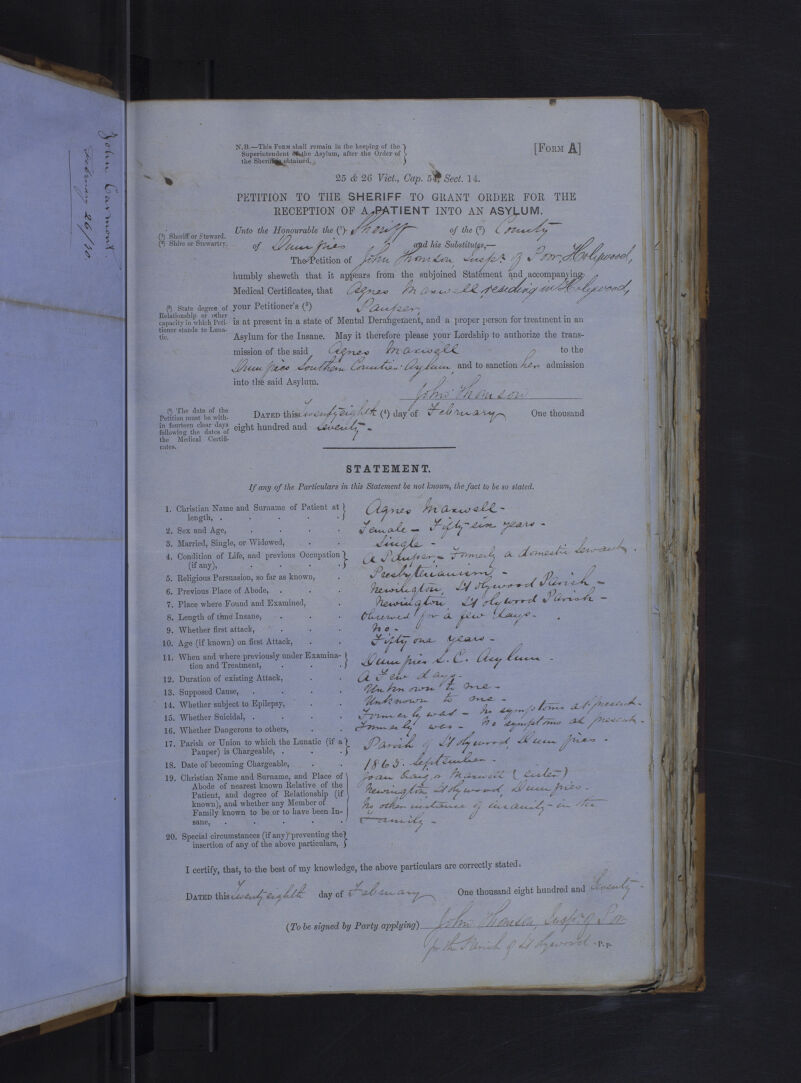 John Carmont
February 26/70.
N.B.—This FORM shall remain in the keeping of the
Superintendent of the Asylum, after the Order of
the Sheriff is obtained.
[FORM A]
25 & 26 Vict., Cap. 54, Sect. 14.
PETITION TO THE SHERIFF TO GRANT ORDER FOR THE
RECEPTION OF A PATIENT INTO AN ASYLUM.
(1) Sheriff or Steward.
(2) Shire or Stewartry.
Unto the Honourable the (1) Sheriff of the (2) County
of Dumfries and his Substitute,—
The Petition of John Thomson Inspr. of Poor, Holywood,
humbly sheweth that it appears from the subjoined Statement and accompanying
Medical Certificates, that Agnes Maxwell, residing in Holywood,
(3) State degree of
Relationship or other
capacity in which Peti-
tioner stands to Luna-
tic.
your Petitioner's (3) Pauper,
is at present in a state of Mental Derangement, and a proper person for treatment in an
Asylum for the Insane. May it therefore please your Lordship to authorize the trans-
mission of the said Agnes Maxwell to the
Dumfries Southern Counties Asylum, and to sanction her admission
into the said Asylum.
John Thomson
(4) The date of the
Petition must be with-
in fourteen clear days
following the dates of
the Medical Certifi-
cates.
DATED this twenty eighth (4) day of February One thousand
eight hundred and seventy -
STATEMENT.
If any of the Particulars in this Statement be not known, the fact to be so stated.
1. Christian Name and Surname of Patient at
length, . . . . . Agnes Maxwell -
2. Sex and Age, . . . . Female - Fifty-six years -
3. Married, Single, or Widowed, . . Single -
4. Condition of Life, and previous Occupation
(if any), . . . . A Pauper - Formerly a domestic Servant.
5. Religious Persuasion, so far as known, . Presbyterianism -
6. Previous Place of Abode, . . . Newington, Holywood Parish -
7. Place where Found and Examined, . Newington, Holywood Parish -
8. Length of time Insane, . . . Observed for a few days.
9. Whether first attack, . . . No -
10. Age (if known) on first Attack, . . Fifty one years -
11. When and where previously under Examina-
tion and Treatment, . . . Dumfries S. C. Asylum -
12. Duration of existing Attack, . . A Few days -
13. Supposed Cause, . . . . Unknown to me -
14. Whether subject to Epilepsy, . . Unknown to me -
15. Whether Suicidal, . . . . Formerly was - No symptoms at present -
16. Whether Dangerous to others, . . Formerly was - No symptoms at present -
17. Parish or Union to which the Lunatic (if a
Pauper) is Chargeable, . . . Parish of Holywood, Dumfries.
18. Date of becoming Chargeable, . . 1865. September -
19. Christian Name and Surname, and Place of
Abode of nearest known Relative of the
Patient, and degree of Relationship (if
known), and whether any Member of
Family known to be or to have been In-
sane, . . . . .
Joan Maxwell (sister)
Newington, Holywood, Dumfries.
No other instance of insanity in the
Family -
20. Special circumstances (if any) preventing the
insertion of any of the above particulars,
I certify, that, to the best of my knowledge, the above particulars are correctly stated.
DATED this twenty eighth day of February One thousand eight hundred and seventy -
(To be signed by Party applying) John Thomson, Inspr. of Poor
for the Parish of Holywood. P.P.